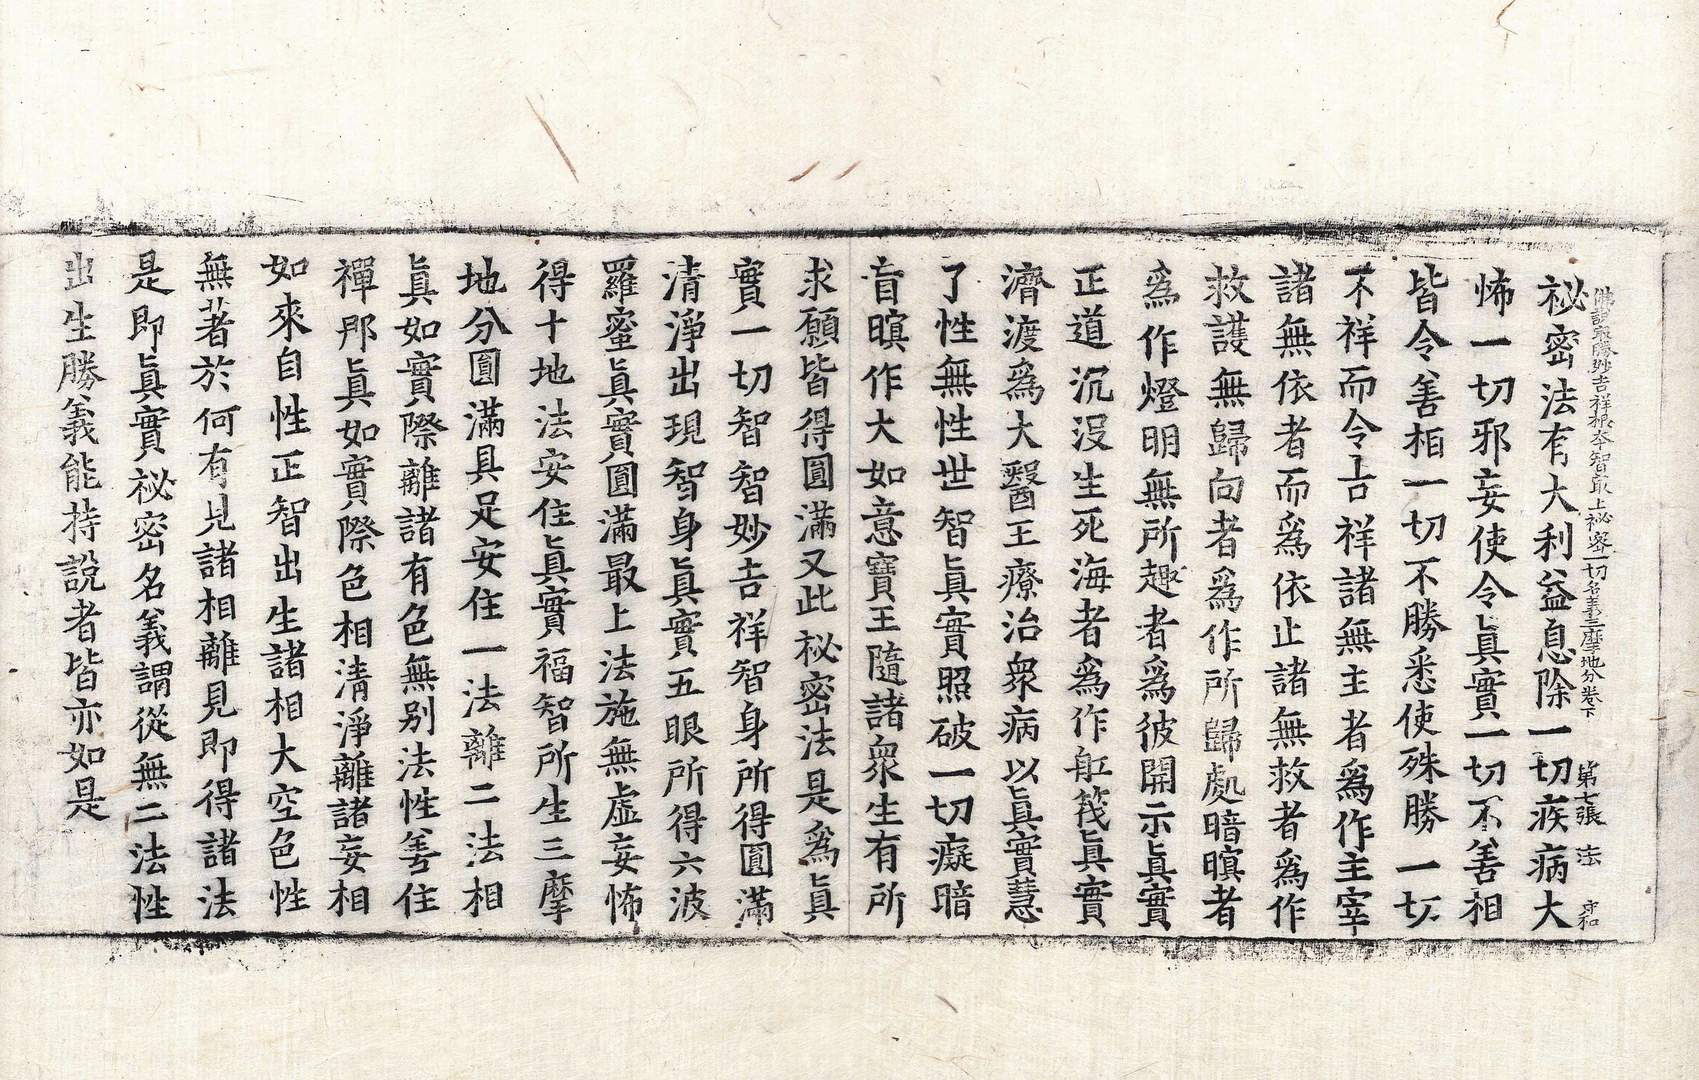 佛說最勝妙吉祥根本智最上祕密一切名義三摩地分卷下 第七張 法 守和
祕密法有大利益息除一切疾病大
怖一切邪妄使令眞實一切不善相
皆令善相一切不勝悉使殊勝一切
不祥而令吉祥諸無主者爲作主宰
諸無依者而爲依止諸無救者爲作
救護無歸向者爲作所歸處暗暝者
爲作燈明無所趣者爲彼開示眞實
正道沉沒生死海者爲作舡筏眞實
濟渡爲大醫王療治衆病以眞實慧
了性無性世智眞實照破一切癡暗
盲暝作大如意寶王隨諸衆生有所
求願皆得圓滿又此祕密法是爲眞
實一切智智妙吉祥智身所得圓滿
清淨出現智身眞實五眼所得六波
羅蜜眞實圓滿最上法施無虛妄怖
得十地法安住眞實福智所生三摩
地分圓滿具足安住一法離二法相
眞如實際離諸有色無別法性善住
禪那眞如實際色相清淨離諸妄相
如來自性正智出生諸相大空色性
無著於何有見諸相離見即得諸法
是即眞實祕密名義謂從無二法性
出生勝義能持說者皆亦如是